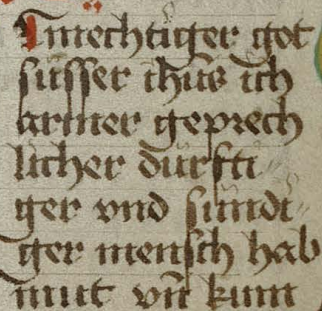 Tmechtiger got
süsser ihūs ich
armer geprech
licher durfti
ger vnd sundi
ger mensch hab
mut vn̄ kum